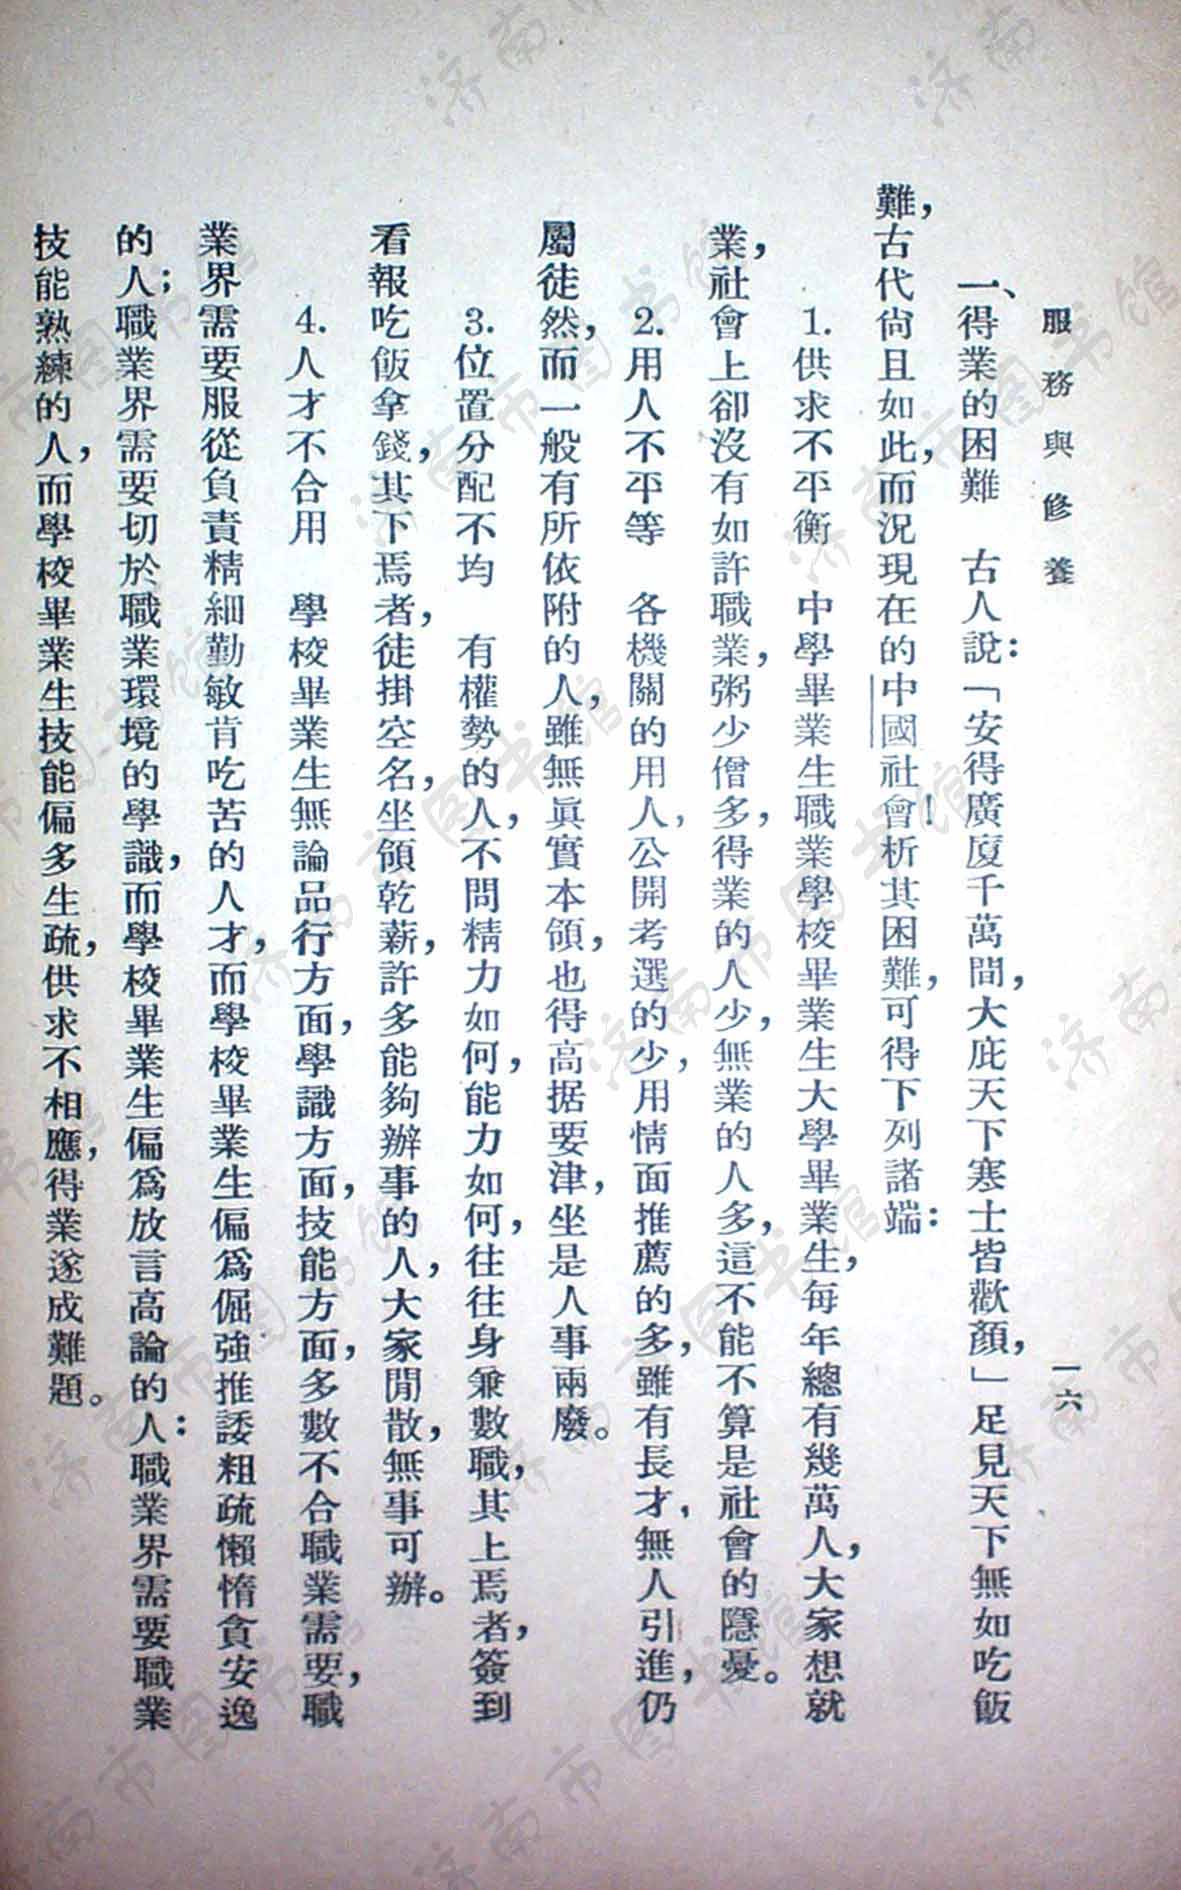 服務與修養
一六
一、得業的困難　古人說：「安得廣廈千萬間，大庇天下寒士皆歡顏，」足見天下無如吃飯
難，古代尙且如此，而況現在的中國社會！析其困難，可得下列諸端：
1. 供求不平衡　中學畢業生職業學校畢業生大學畢業生，每年總有幾萬人，大家想就
業，社會上卻沒有如許職業，粥少僧多，得業的人少，無業的人多，這不能不算是社會的隱憂。
2. 用人不平等　各機關的用人，公開考選的少，用情面推薦的多，雖有長才，無人引進，仍
屬徒然，而一般有所依附的人，雖無眞實本領，也得高据要津，坐是人事兩廢。
3. 位置分配不均　有權勢的人，不問精力如何，能力如何，往往身兼數職，其上焉者，簽到
看報吃飯拿錢，其下焉者，徒掛空名，坐領乾薪，許多能夠辦事的人，大家閒散，無事可辦。
4. 人才不合用　學校畢業生無論品行方面，學識方面，技能方面，多數不合職業需要，職
業界需要服從負責精細勤敏肯吃苦的人才，而學校畢業生偏爲倔強推諉粗疏懶惰貪安逸
的人；職業界需要切於職業環境的學識，而學校畢業生偏爲放言高論的人：職業界需要職業
技能熟練的人，而學校畢業生技能偏多生疏，供求不相應，得業遂成難題。
济南市图书馆